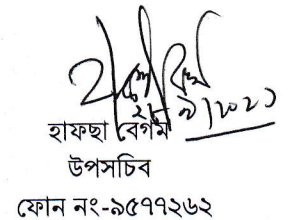 হাফছা বেগম
উপসচিব
ফোন নং-৯৫৭৭২৬২